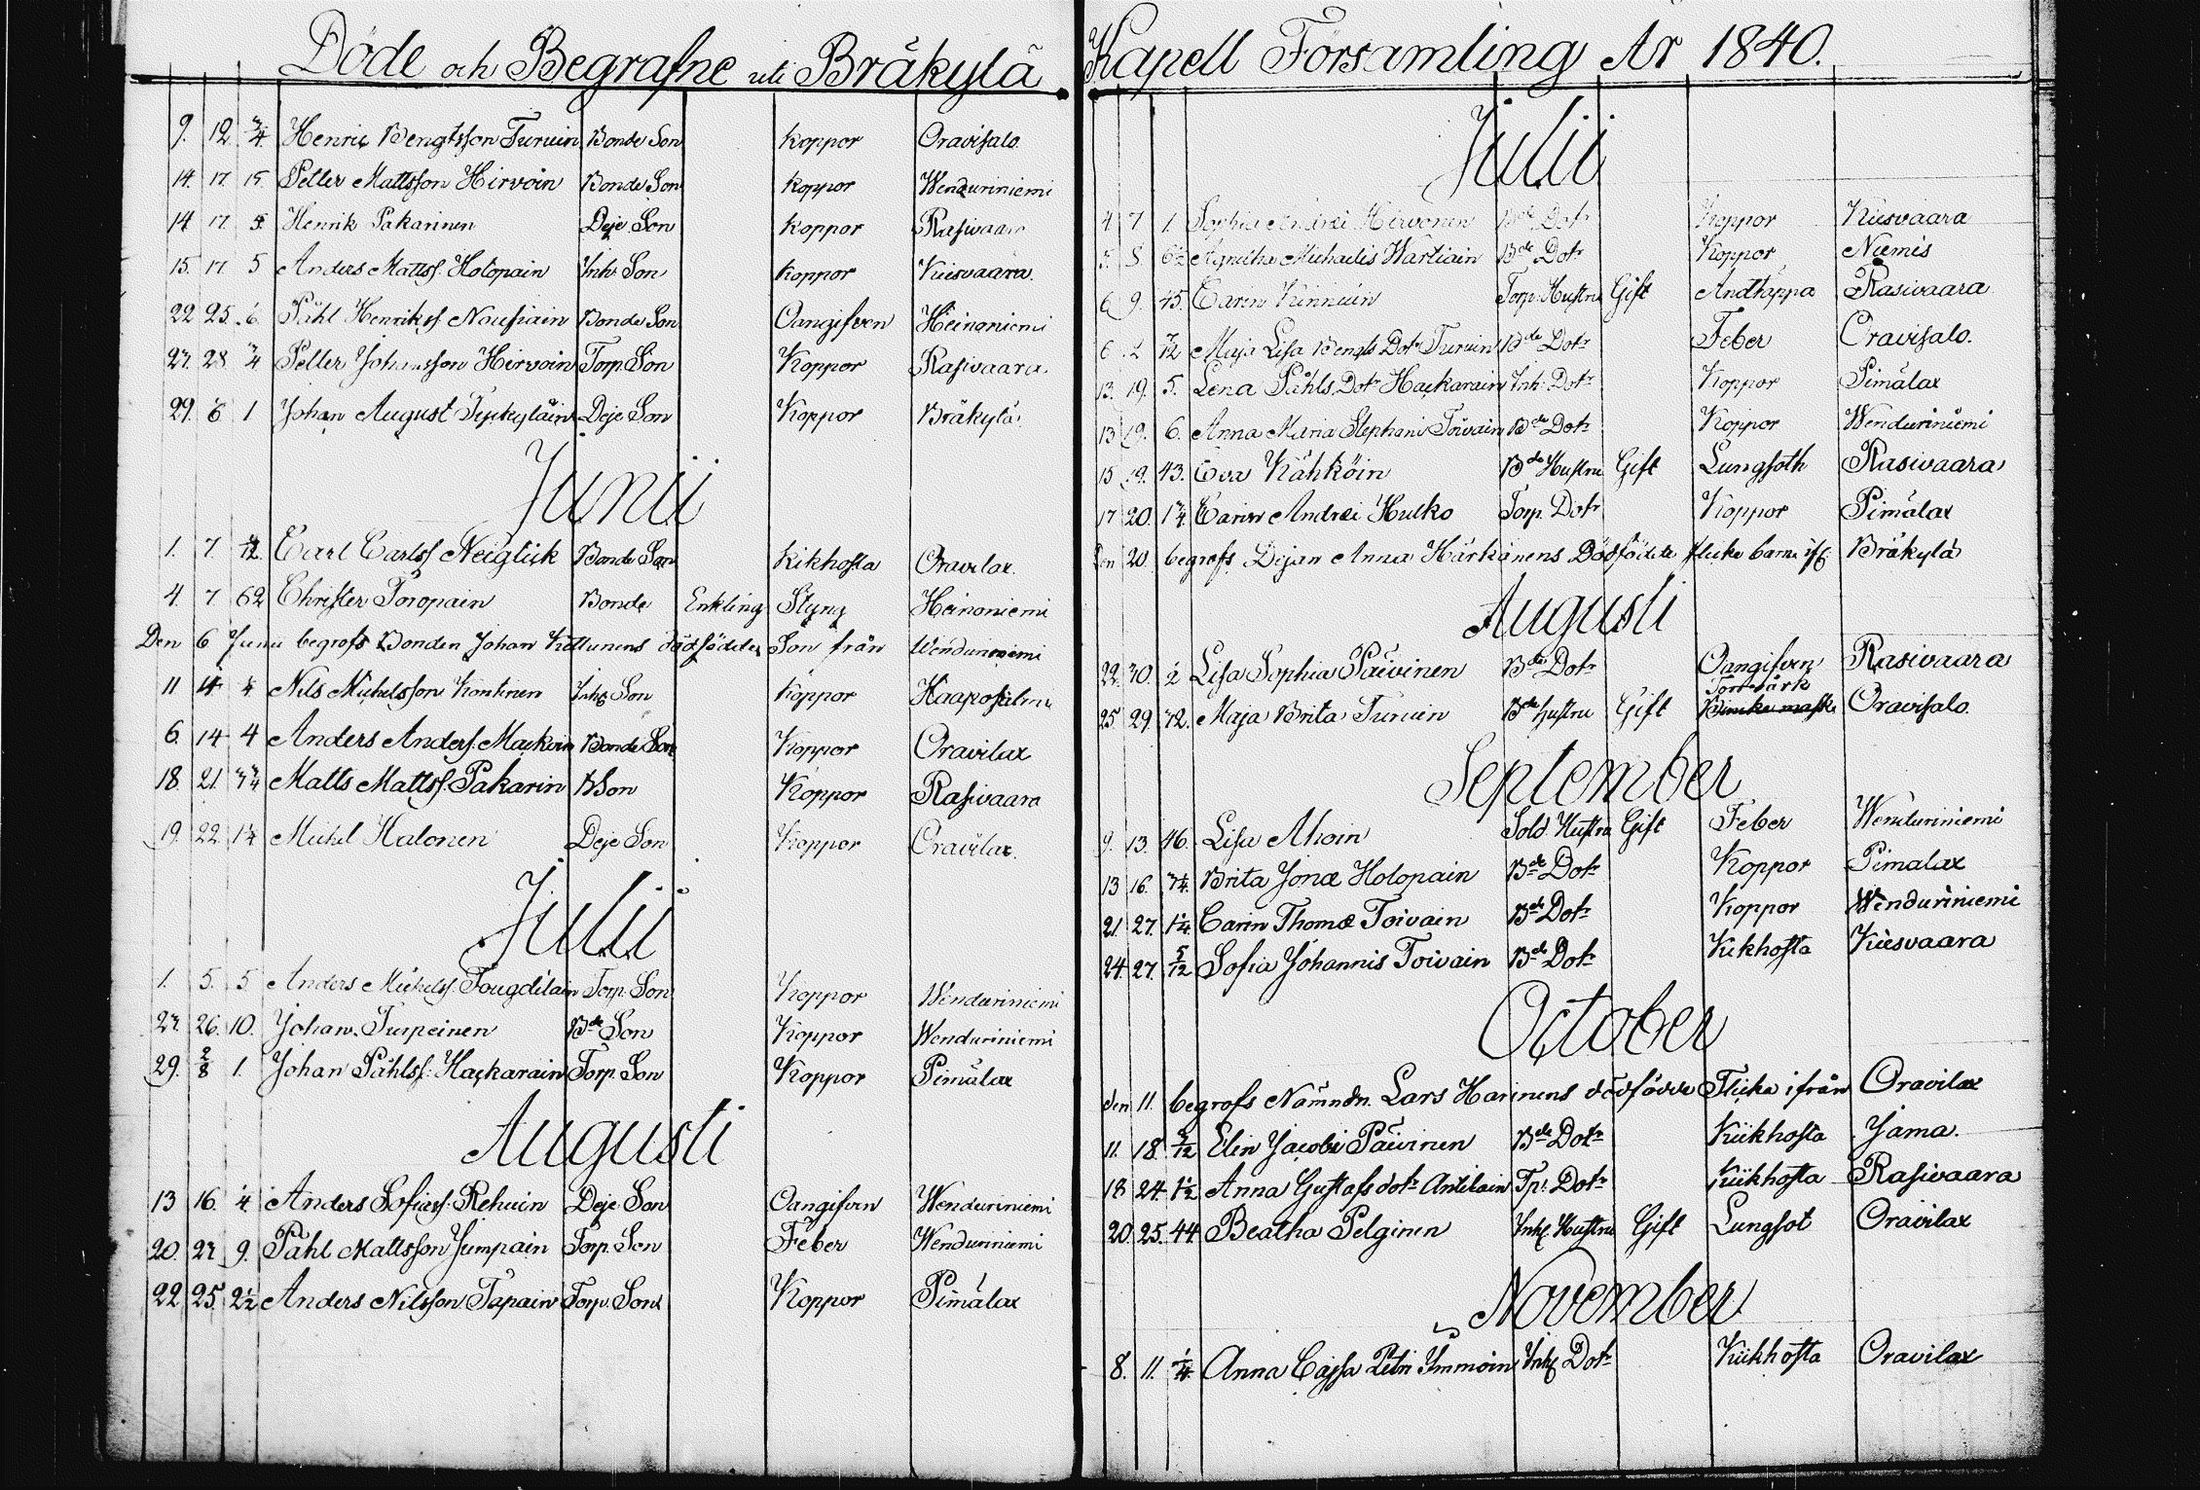 Döde och Begrafne uti Bräkylä
9. 12 3/4 Henric Bengtsson Turuin Bonde Son koppor Oravisalo.
14. 17. 15 Petter Mattsson Hirvoin Bonde Son koppor Wenduriniemi
14 17 5 Henrik Pakarinen Deje Son koppor Rasivaara
15. 17 5 Anders Matts. Holopain Inh. Son koppor Kiesvaara.
22 25 6 Påhl Henrikss. Nousiain Bonde Son Oangifven Heinoniemi
27. 28 3/4 Petter Johansson Hirvoin Torp. Son Koppor Rasivaara.
29. 6 1 Johan August Deje Son Koppor Bräkylä
Junii
1. 7 Carl Carlss. Neiglick Bonde Son kikhosta Oravilax.
4. 7 62 Christer Toropain Bonde Enkling Styng Heinoniemi
Den 6 Junii begrofs Bonden Johan Kettunens dödfödde Son från Wenduriniemi
11 14 Nils Michelsson Kontinen Inh. Son koppor Haaposalmi
6 14 4 Anders Anders. Bonde Son Koppor Oravilax
18. 21 3 3/4 Matts Mattss. Pakarin B Son Koppor Rasivaara
19. 22. 1 1/4 Michel Halonen Deje Son Koppor Oravilax.
Julii
1. 5. 5 Anders Michelss. Torp. Son Koppor Wenduriniemi
27. 26. 10. Johan Turpeinen Bde Son Koppor Wenduriniemi
29. 2/8 1. Johan Påhlss. Hackarain Torp. Son Koppor Pimälax
Augusti
13 16. 4 Anders Sofiæss. Rehuin Deje Son Oangifven Wenduriniemi
20. 27 9. Påhl Mattsson Jumpain Torp. Son Feber Wenduriniemi
22 25 2 1/2 Anders Nilsson Tapain Torp. Son Koppor Pimälax
Kapell Församling År 1840.
Julii
4 7 1. Sophia Andrei Hirvonen Bde Dotr Koppor Kiesvaara
5. 8 6 1/2 Agnetha Michaelis Wartiain Bde Dotr Koppor Niemis
6 9. 45. Carin Kinnuin Torp. Hustru Gift Andtäppa Rasivaara
6 Maja Lisa Bengts Dotr Turuin Bde Dotr Feber Oravisalo.
13. 19. 5. Lena Påhls Dotr Hackarain Inh. Dotr Koppor Pimälax
13 19. 6. Anna Maria Stephani Toivain Bde Dotr Koppor Wenduriniemi
15 19. 43. Eva Kähköin Bde Hustru Gift Lungsoth Rasivaara
17 20. 1 3/4 Carin Andrei Hulko Torp. Dotr Koppor Pimälax
Den 20. begrofs Dejan Anna Härkönens Dödfödde flicke barn ifr. Bräkylä
Augusti
22. 30. 2 Lisa Sophia Päivinen Bde Dotr Oangifven Rasivaara
25 29. 72. Maja Brita Turuin Bde Hustru Gift Torrvärk Binke mask Oravisalo.
September
9. 13. 46. Lisa Ahoin Sold. Hustru Gift Feber Wenduriniemi
13 16. 3 1/4 Brita Jonæ Holopain Bde Dotr Koppor Pimalax
21. 27. 1 1/4 Carin Thomæ Toivain Bde Dotr Koppor Wenduriniemi
24. 27. 5/12 Sofia Johannis Toivain Bde Dotr Kikhosta Kiesvaara
October
den 11. begrofs Nämndn. Lars Harinens dödfödde Flicka ifrån Oravilax
11. 18. Elin Jacobi Päivinen Bde Dotr Kiikhosta Jama.
18 24. 1 1/2 Anna Gustafs dotr Antilain Tp. Dotr Kiikhosta Rasivaara
20. 25. 44 Beatha Pelginen Inh. Hustru Gift Lungsot Oravilax
November
8. 11. 1/4 Anna Cajsa Petri Immoin Inh. Dotr Kiikhosta Oravilax